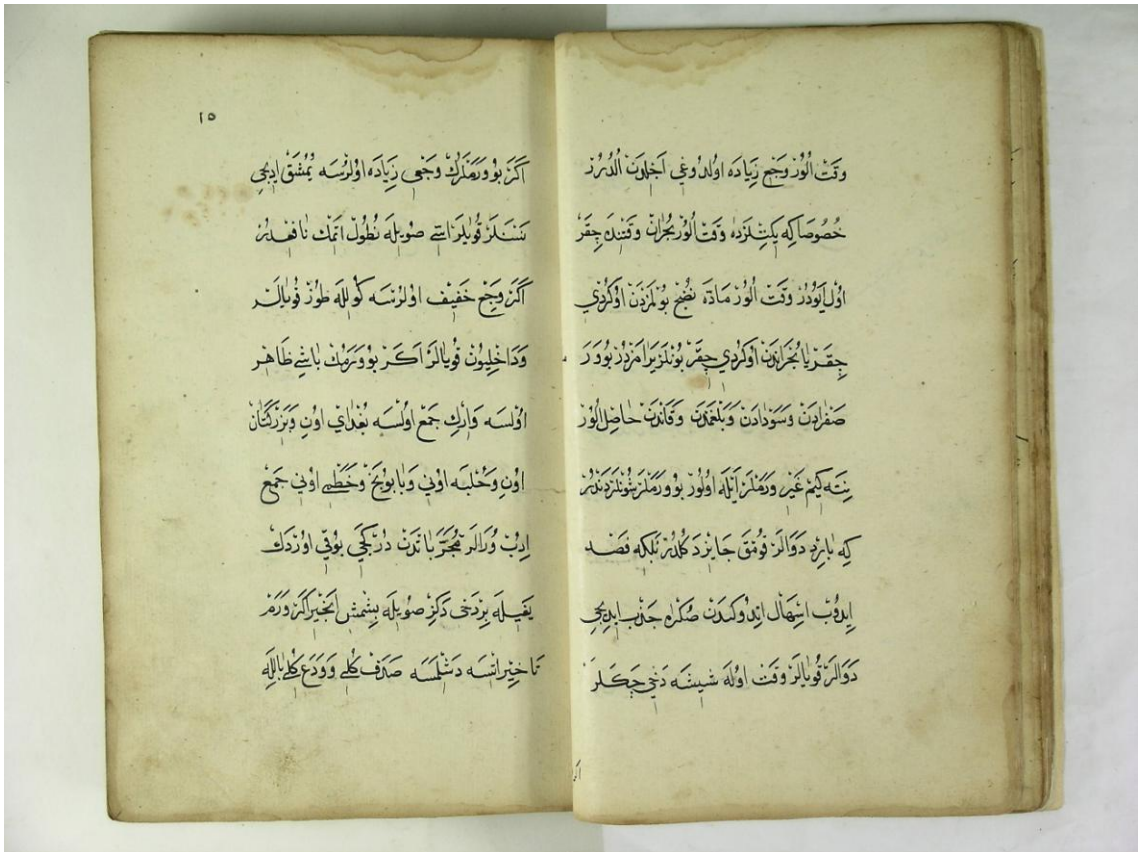 وقت الور وجع زياده اولدوغي اجلدن الدرر
خصوصا كه يكتلرده وقت الور بحران وقتنده چقر
اول ايودر وقت الور ماده نضج بولمزدن اوكردي
چقر يا بحراندن اوكردي چقر بونلر يرامزدر بو ورم
صفرادن وسودادن وبلغمدن وقاندن حاصل الور
نته كيم غير ورملر ايله اولور بو ورملر شونلردندر
كه بارد دوالر قومق جايز دكلدر بلكه فصد
ايدوب اسهال ايدوكندن صكره جذب ايديجي
دوالر قويالر وقت اوله شيشه دخي چكلر
اكر
١٥
اكر بو ورملرك وجعي زياده اولرسه يمشق ايديجي
نسنلر قويلر اسي صويله نطول اتمك نافعدر
اكر وجع خفيف اولرسه كولله طوز قويالر
وداخليون قويالر اكر بو ورمك باشي ظاهر
اولسه وارك جمع اولسه بغداي اون وبزر كتان
اون وحلبه اوني وبابونج وخطمي اوني جمع
ادب ورالر مجربندن در كجي بوقي اوردك
يغيله بر دخي دكز صويله بشمش انجير اكر ورم
تاخير اتسه دشلمسه صدف كلي وودع كلي بالله